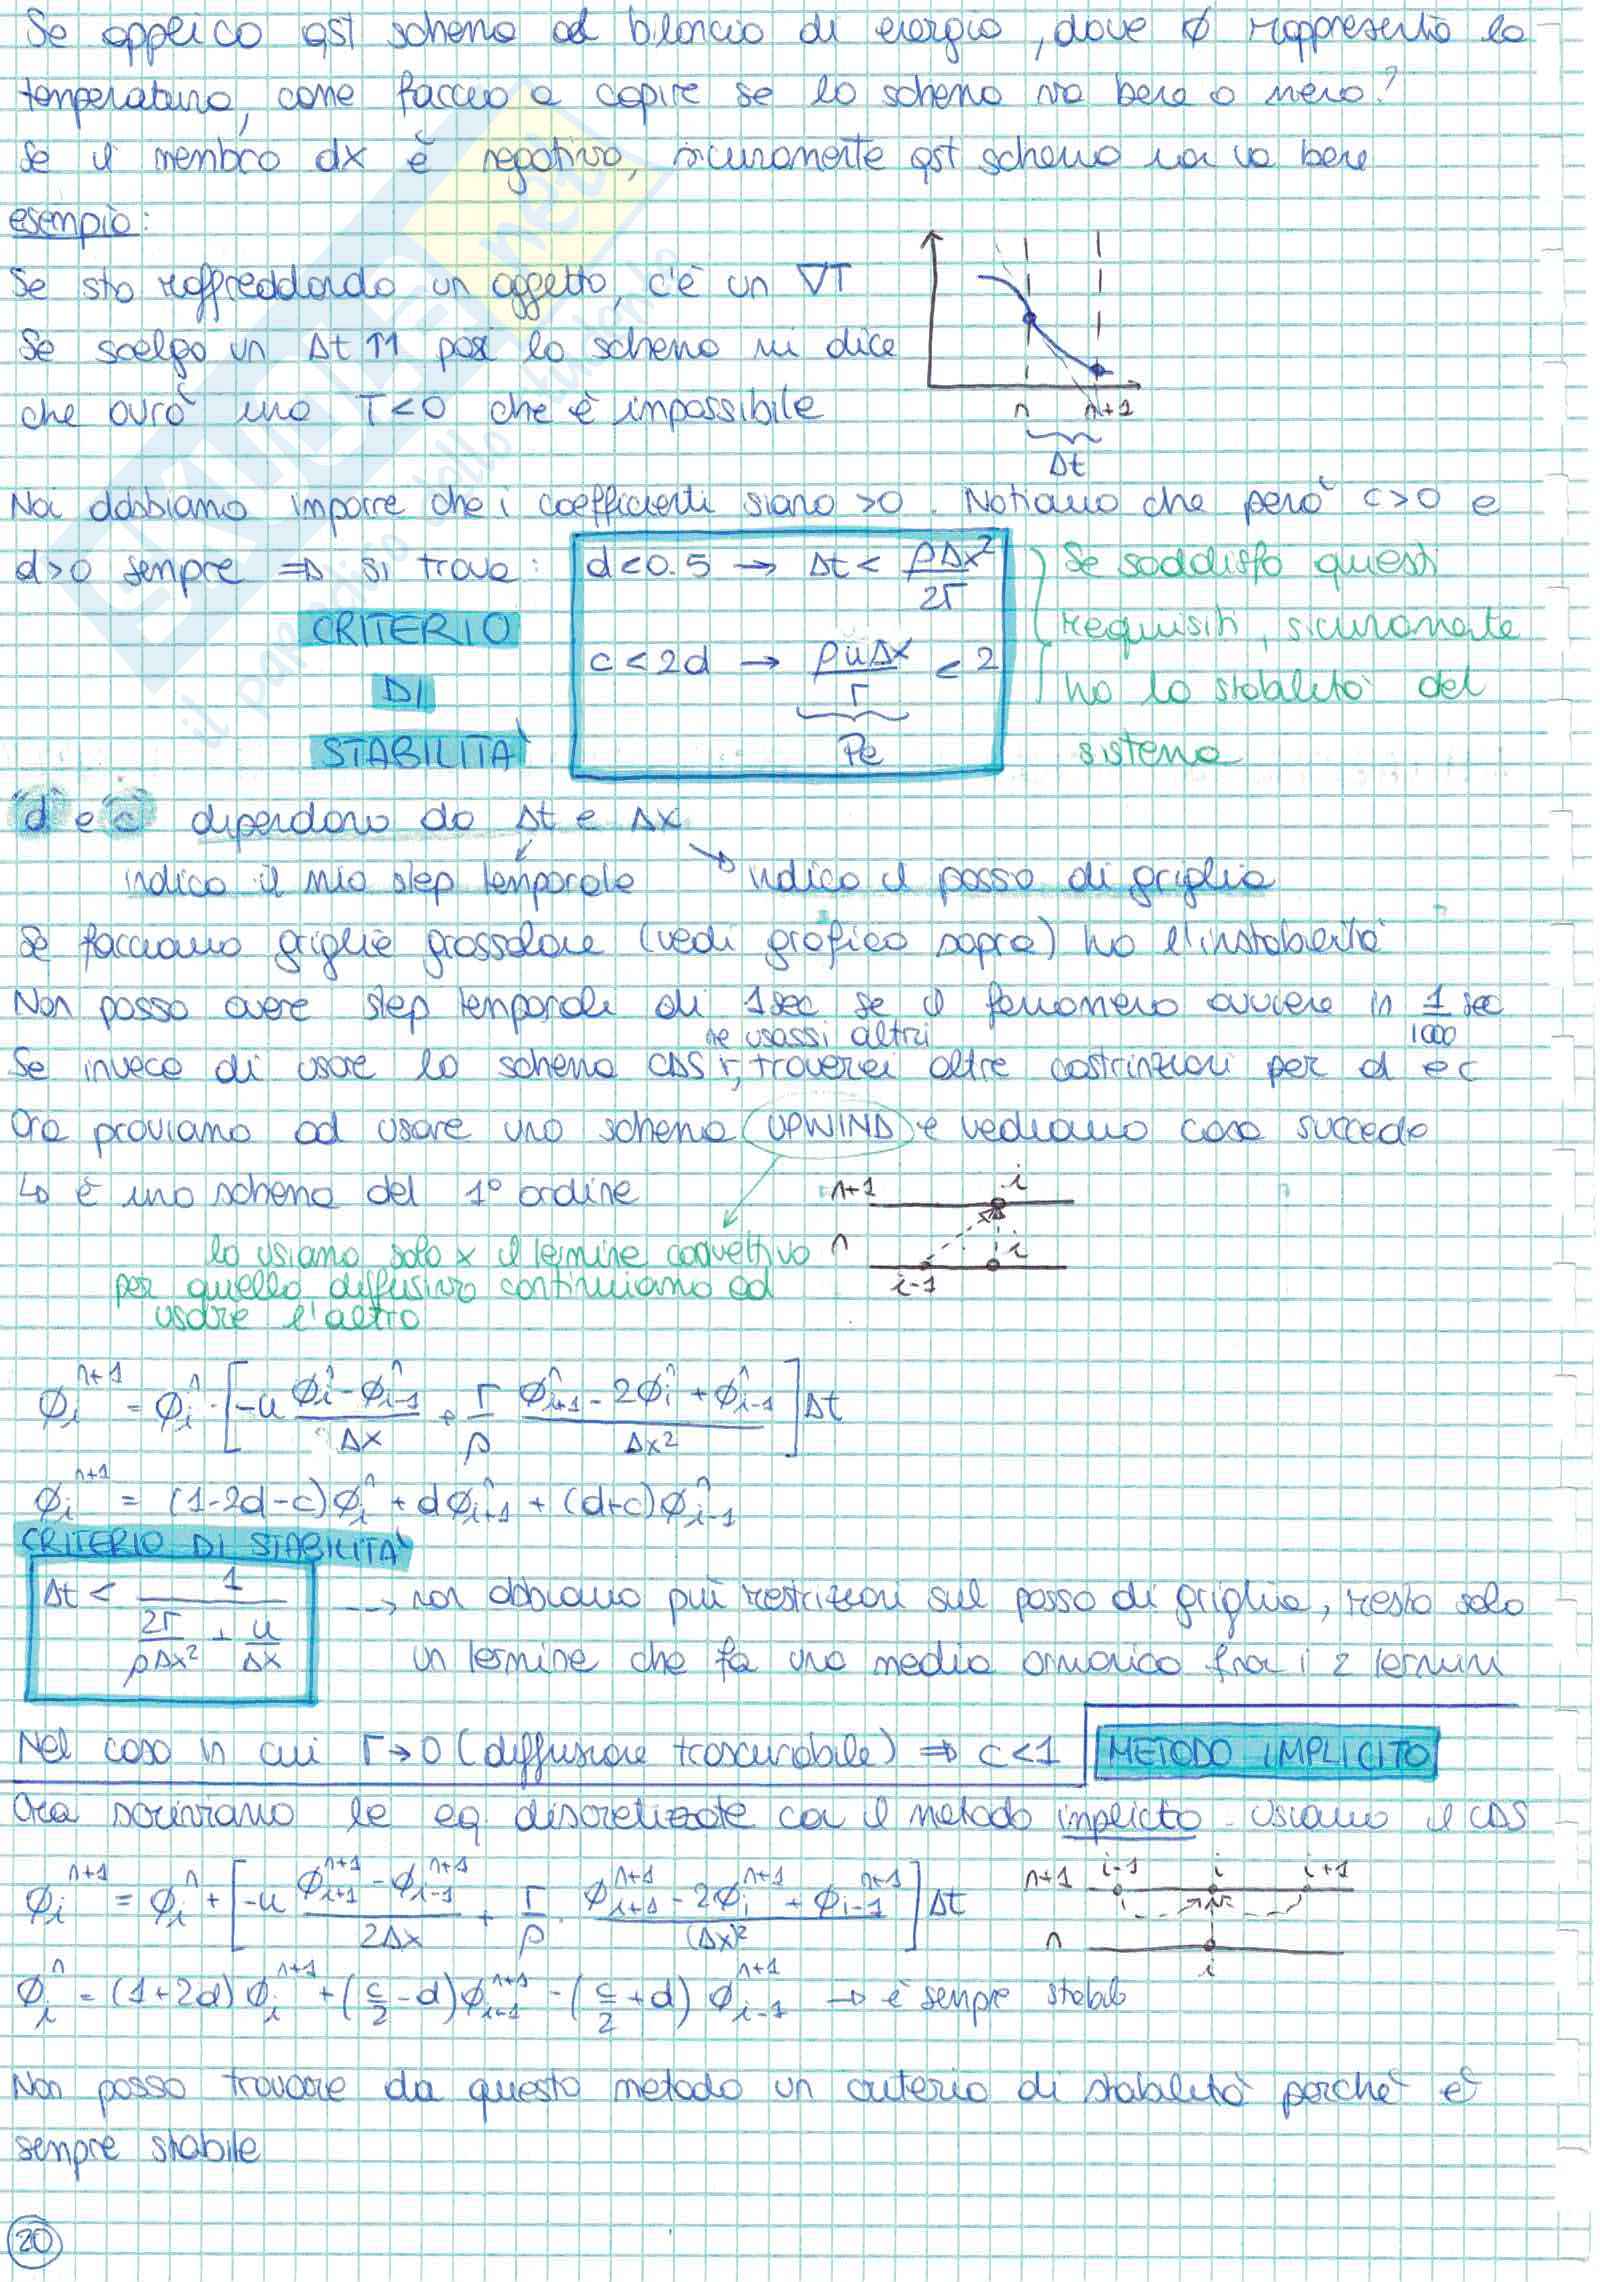 Se applico qst schema al bilancio di energia, dove ϕ rappresenta la
temperatura, come faccio a capire se lo schema va bene o meno?
Se il membro dx è negativo, sicuramente qst schema non va bene
esempio:
Se sto raffreddando un oggetto, c'è un ∇T
Se scelgo un Δt ↑↑ poi lo schema mi dice
che avrò una T<0 che è impossibile
n n+1
Δt
Noi dobbiamo imporre che i coefficienti siano >0. Notiamo che però c>0 e
d>0 sempre ⇒ si trova:
d<0.5 → Δt < ρΔx²/2Γ
c<2d → ρuΔx/Γ < 2
Pe
CRITERIO
DI
STABILITÀ
Se soddisfo questi
requisiti, sicuramente
ho la stabilità del
sistema
"d" e "c" dipendono da Δt e Δx
indica il mio step temporale indica il passo di griglia
Se facciamo griglie grossolane (vedi grafico sopra) ho l'instabilità
Non posso avere step temporali di 1sec se il fenomeno avviene in 1/1000 sec
se usassi altri
Se invece di usare lo schema CDS, troverei altre costrinzioni per d e c
Ora proviamo ad usare uno schema UPWIND e vediamo cosa succede
↳ è uno schema del 1° ordine
n+1 i
n i
i-1
lo usiamo solo x il termine convettivo
per quello diffusivo continuiamo ad
usare l'altro
ϕᵢⁿ⁺¹ = ϕᵢⁿ · [-u (ϕᵢⁿ - ϕᵢ₋₁ⁿ)/Δx + Γ/ρ (ϕᵢ₊₁ⁿ - 2ϕᵢⁿ + ϕᵢ₋₁ⁿ)/Δx²] Δt
ϕᵢⁿ⁺¹ = (1-2d-c)ϕᵢⁿ + dϕᵢ₊₁ⁿ + (d+c)ϕᵢ₋₁ⁿ
CRITERIO DI STABILITÀ
Δt < 1/(2Γ/ρΔx² + u/Δx) → non abbiamo più restrizioni sul passo di griglia, resta solo
un termine che fa una media armonica fra i 2 termini
Nel caso in cui Γ→0 (diffusione trascurabile) ⇒ c<1
METODO IMPLICITO
Ora scriviamo le eq. discretizzate con il metodo implicito. Usiamo il CDS
ϕᵢⁿ⁺¹ = ϕᵢⁿ + [-u (ϕᵢ₊₁ⁿ⁺¹ - ϕᵢ₋₁ⁿ⁺¹)/2Δx + Γ/ρ · (ϕᵢ₊₁ⁿ⁺¹ - 2ϕᵢⁿ⁺¹ + ϕᵢ₋₁ⁿ⁺¹)/(Δx)²] Δt
n+1 i-1 i i+1
n
i
ϕᵢⁿ = (1+2d) ϕᵢⁿ⁺¹ + (c/2 - d)ϕᵢ₊₁ⁿ⁺¹ - (c/2 + d) ϕᵢ₋₁ⁿ⁺¹ → è sempre stabile
Non posso trovare da questo metodo un criterio di stabilità perché è
sempre stabile
20